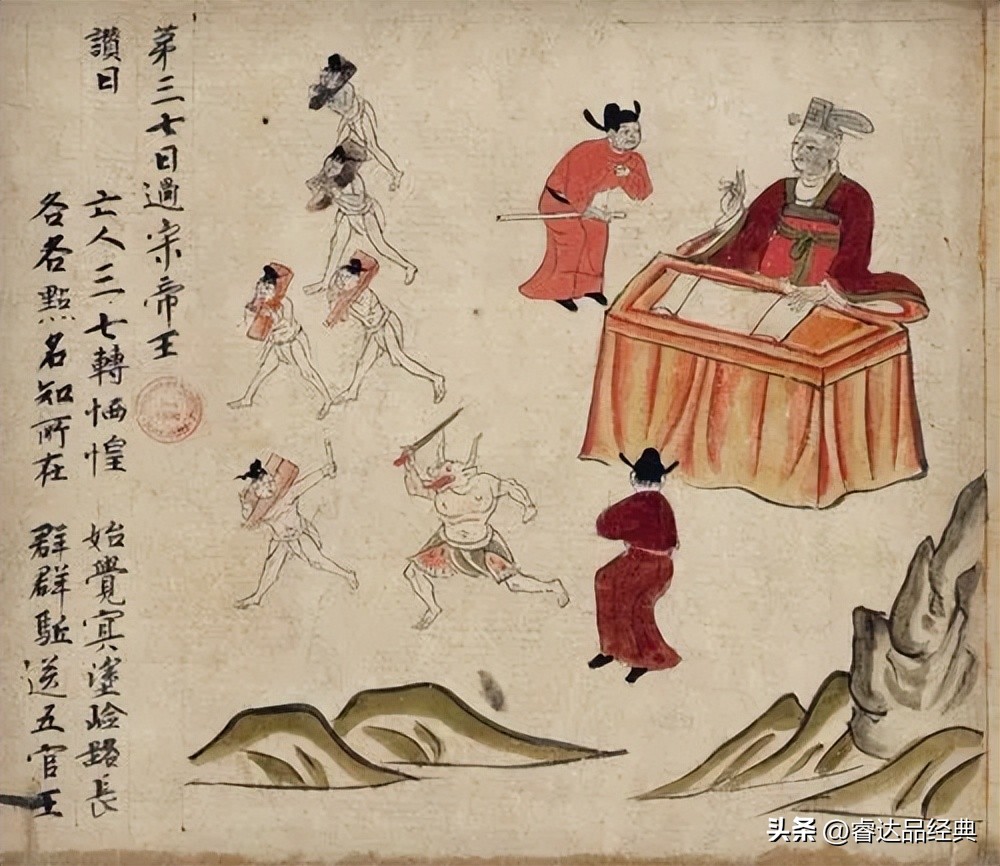 苐三七日過宋帝王
讚曰 亡人三七轉恓惶 始覺冥塗險路長
各各點名知所在 群群駈送五官王
头条 @睿达品经典